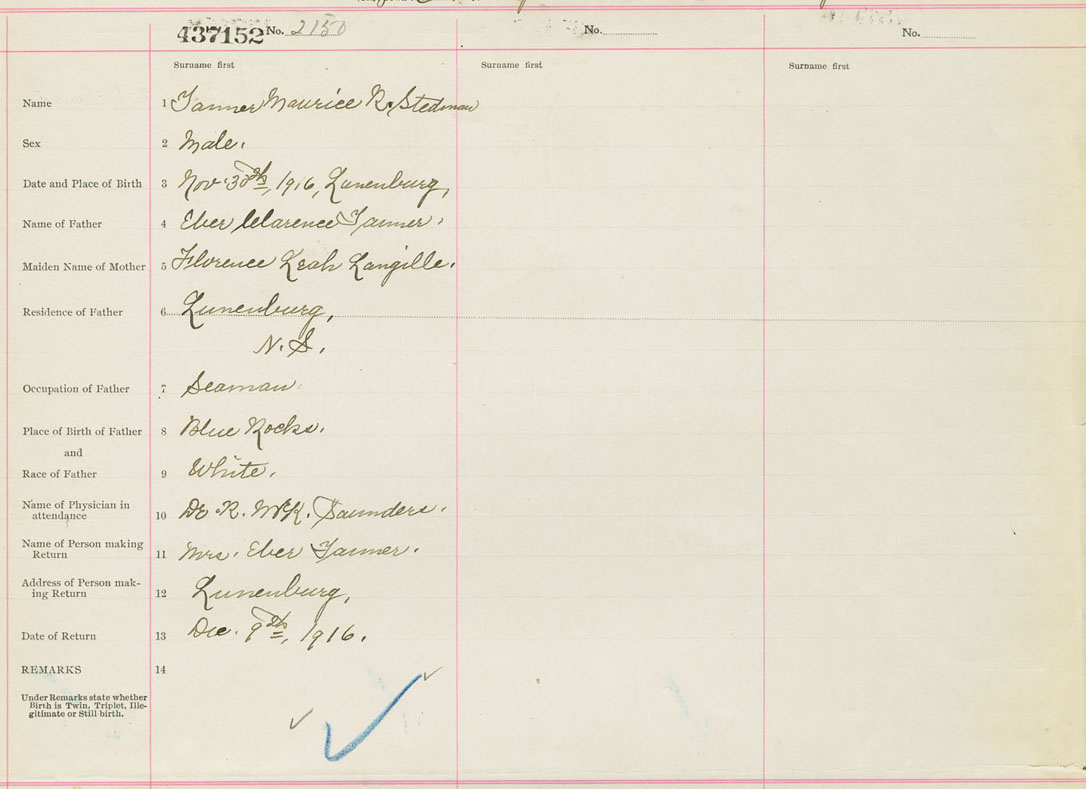 437152 No. 2150 No. No.
Surname first Surname first Surname first
Name 1 Tanner Maurice R. Stedman
Sex 2 Male.
Date and Place of Birth 3 Nov. 30th, 1916, Lunenburg,
Name of Father 4 Eber Clarence Tanner.
Maiden Name of Mother 5 Florence Leah Langille.
Residence of Father 6 Lunenburg,
N. S.
Occupation of Father 7 Seaman.
Place of Birth of Father 8 Blue Rocks.
and
Race of Father 9 White.
Name of Physician in
attendance 10 Dr. R. McK. Saunders.
Name of Person making
Return 11 Mrs. Eber Tanner.
Address of Person mak-
ing Return 12 Lunenburg,
Date of Return 13 Dec. 9th, 1916.
REMARKS 14
Under Remarks state whether
Birth is Twin, Triplet, Ille-
gitimate or Still-birth.